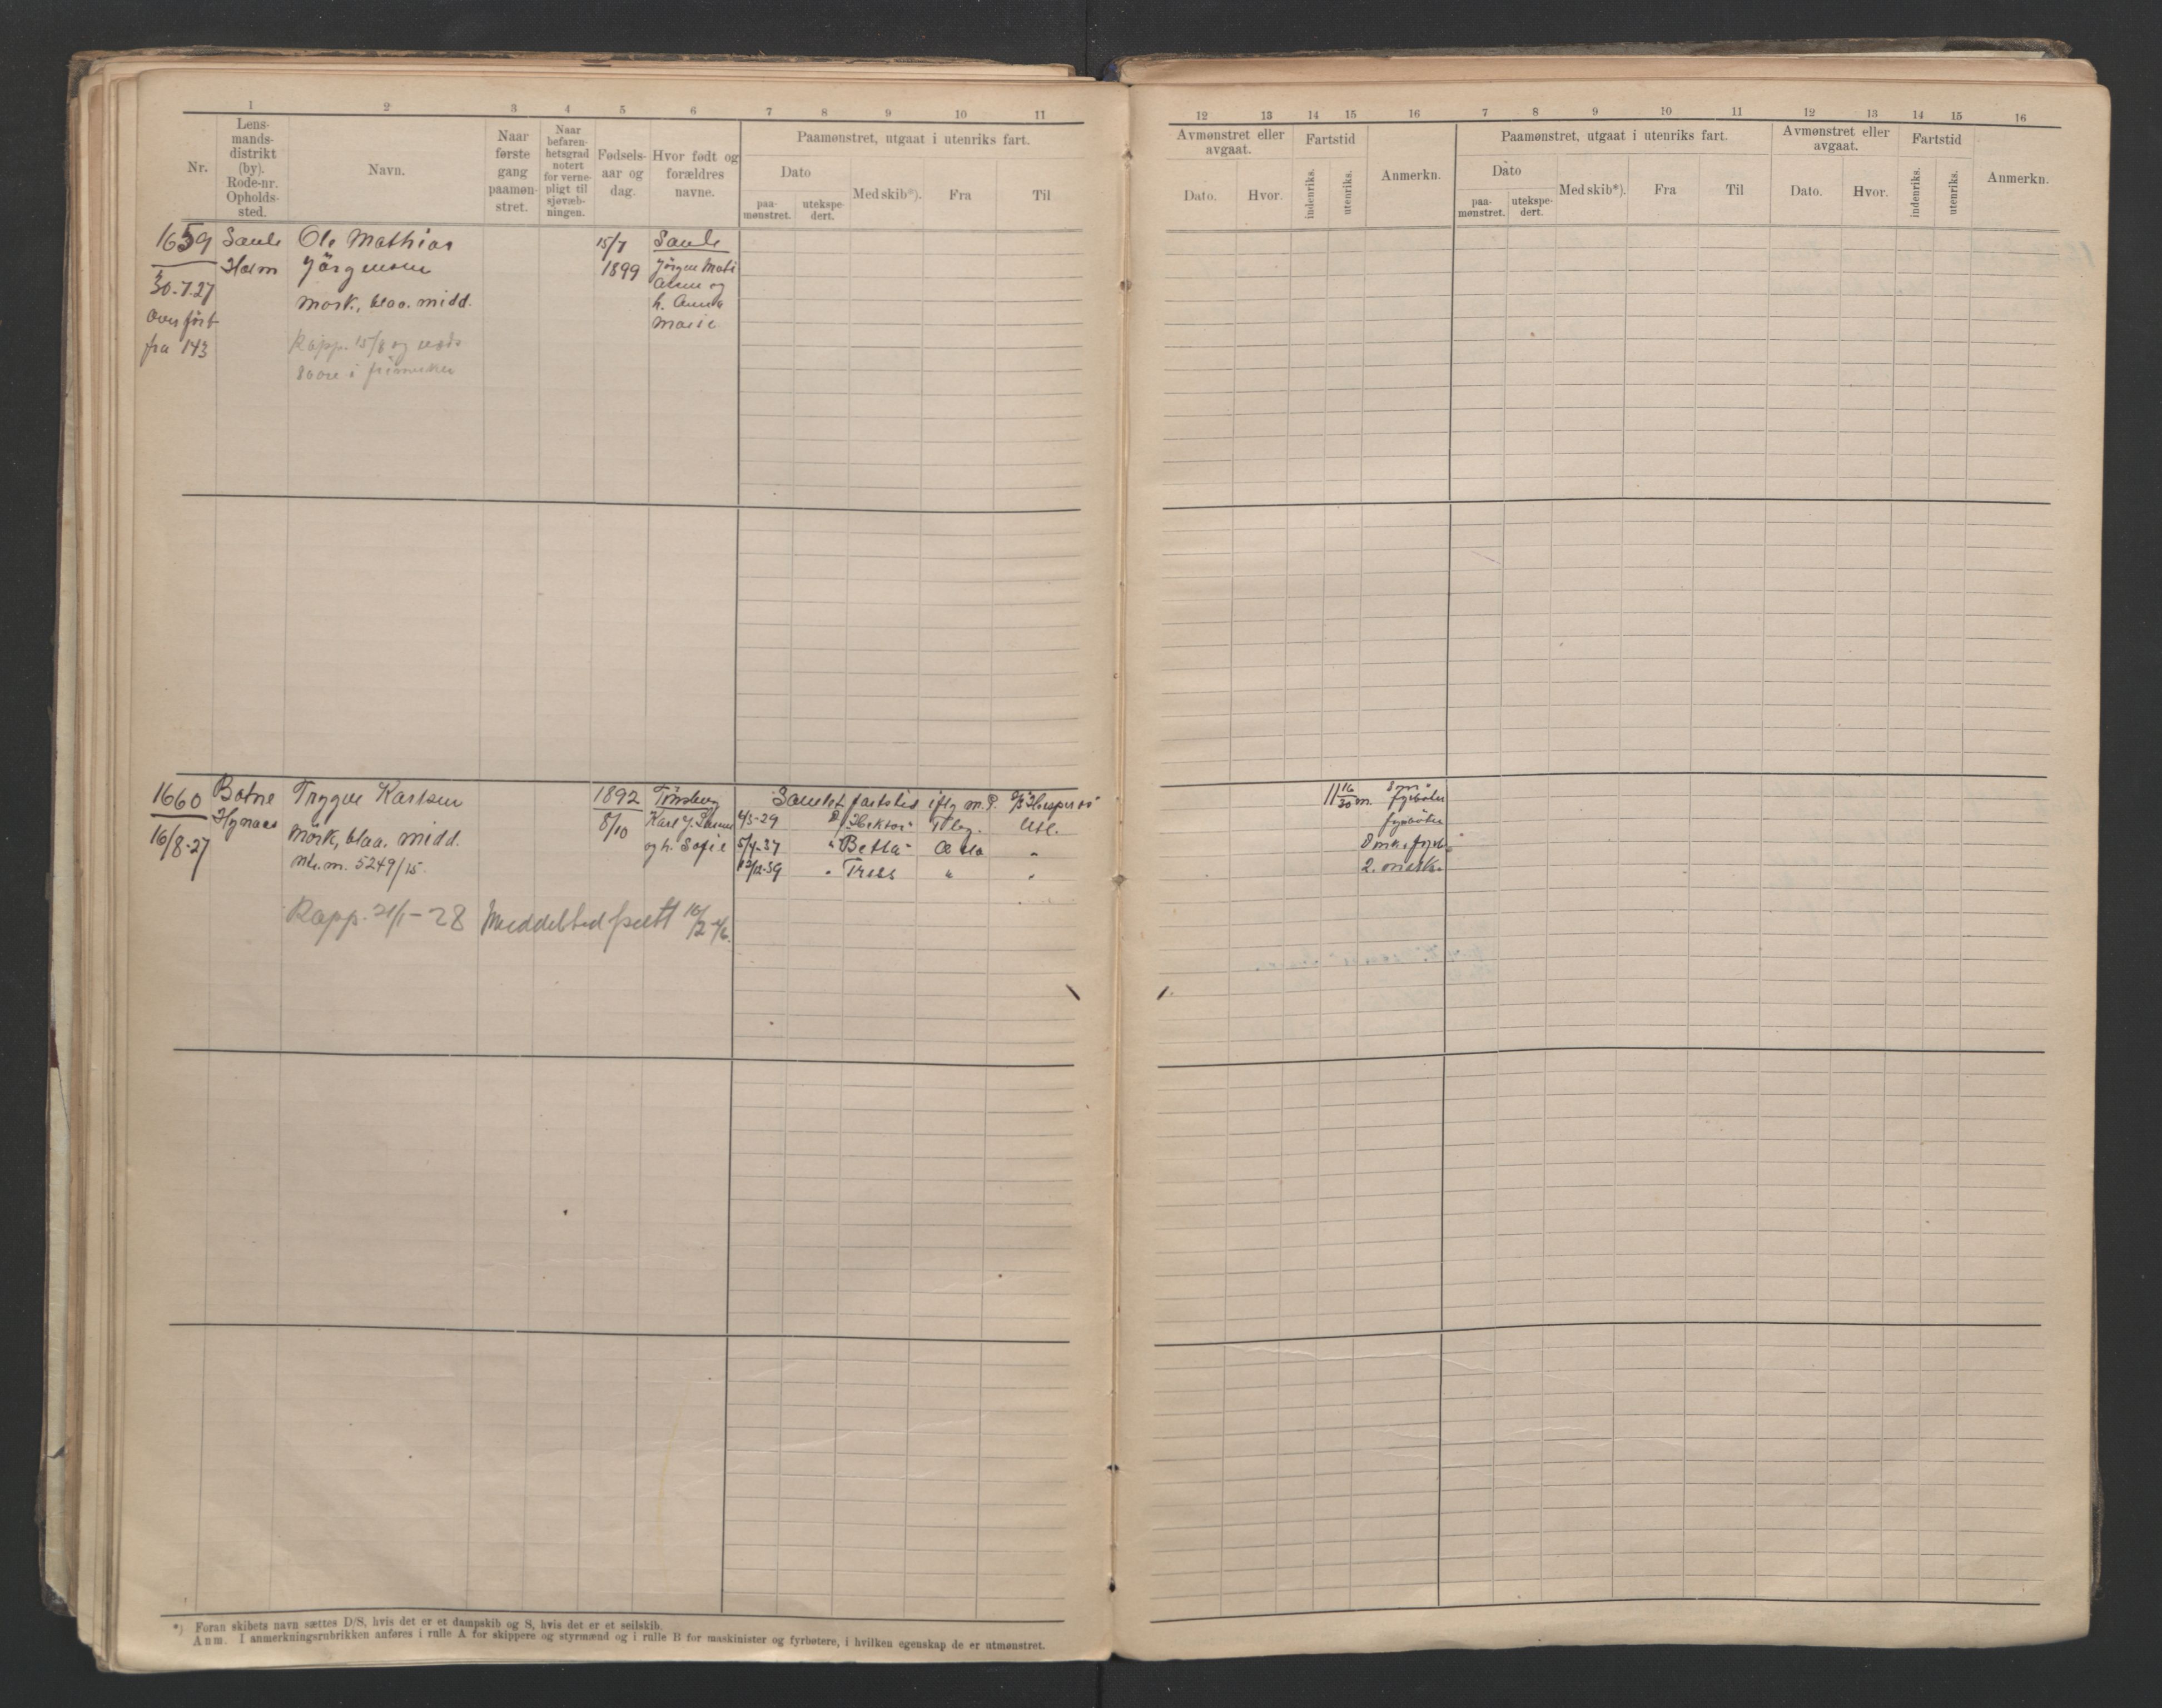 1 2 3 4 5 6 7 8 9 10 11
Nr.
Lens-
mands-
distrikt
(by).
Rode-nr.
Opholds-
sted.
Navn.
Naar
første
gang
paamøn-
stret.
Naar
befaren-
hetsgrad
notert
for verne-
pligt til
sjøvæb-
ningen.
Fødsels-
aar og
dag.
Hvor født og
forældres
navne.
Paamønstret, utgaat i utenriks fart.
Dato
paa-
mønstret.
utekspe-
dert.
Med skib*).
Fra
Til
1659 Sande Ole Mathias 15/7 Sande
Holm Jörgensen 1899 Jörgen Mathi
30-7.27 mørk, blaa. midd. og
Overført h. Anna
fra 143 Marie
Rapp. 15/8 og
i frimerker
1660 Botne Trygve Karlsen 1892 Tønsberg Samlet fartstid iflg m.P. Hesperos
16/8-27 mörk, blaa. midd. 8/10 Karl J. 4/3-29 D/ "Hektor" Tbg. Utl.
5249/15. og h. Sofie 5/4-37 " "Betta" "
12/12-39 " Tress " "
Rapp. 21/1-28 Meddelt 10/2
*) Foran skibets navn sættes D/S, hvis det er et dampskib og S, hvis det er et seilskib.
Anm. I anmerkningsrubrikken anføres i rulle A for skippere og styrmænd og i rulle B for maskinister og fyrbøtere, i hvilken egenskap de er utmønstret.
12 13 14 15 16 7 8 9 10 11 12 13 14 15 16
Avmønstret eller
avgaat.
Dato.
Hvor.
Fartstid
indenriks.
utenriks.
Anmerkn.
Paamønstret, utgaat i utenriks fart.
Dato
paa-
mønstret.
utekspe-
dert.
Med skib*).
Fra
Til
Avmønstret eller
avgaat.
Dato.
Hvor.
Fartstid
indenriks.
utenriks.
Anmerkn.
11 16/30 m. fyrböter
fyrböter
2. mask.